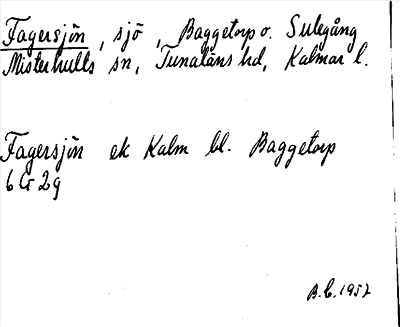 Fagersjön, sjö, Baggetorp o. Sulegång
Misterhults sn, Tunaläns hd, Kalmar l.
Fagersjön ek Kalm bl. Baggetorp
6 G 2 g
B.C. 1957